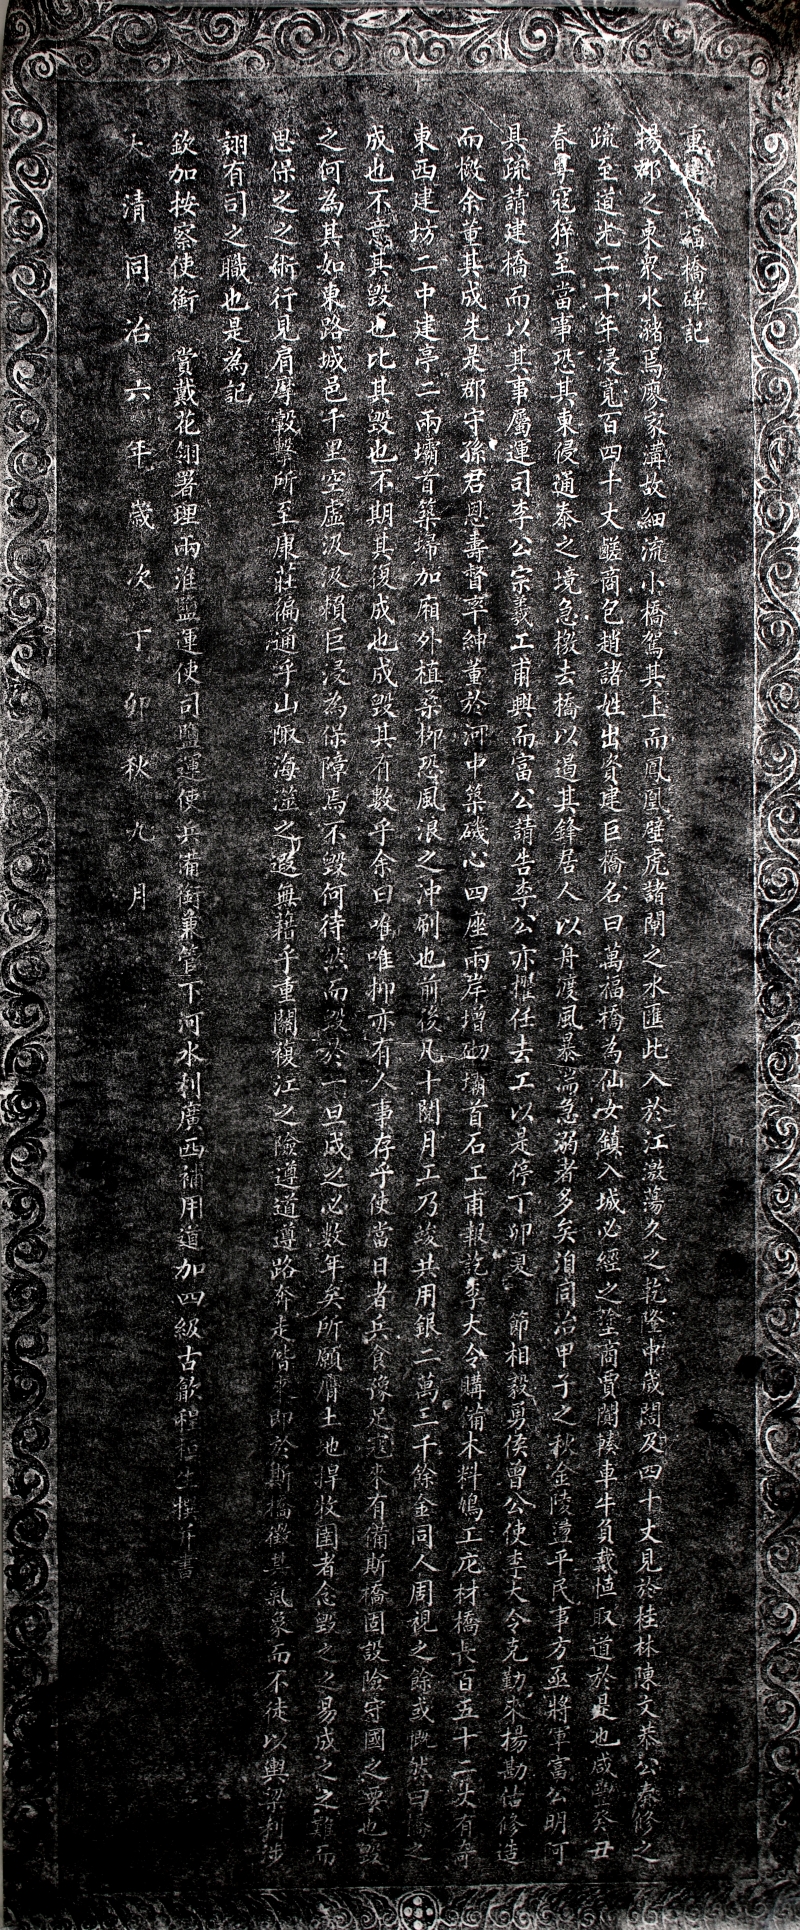 重建萬福橋碑記
揚郡之東眾水瀦焉廖家溝故細流小橋駕其上而鳳凰壁虎諸閘之水匯此入於江激蕩久之乾隆中歲闊及四十丈見於桂林陳文恭公奏修之
疏至道光二十年浸寬百四十丈鹺商包趙諸姓出資建巨橋名曰萬福橋為仙女鎮入城必經之塗商賈闐餱車牛負戴恒取道於是也咸豐癸丑
春粵寇猝至當事恐其東侵通泰之境急檄去橋以遏其鋒居人以舟渡風暴湍急溺者多矣洎同治甲子之秋金陵蕩平民事方亟將軍富公明阿
具疏請建橋而以其事屬運司李公宗羲工甫興而富公請告李公亦擢任去工以是停丁卯夏 節相毅勇侯曾公使李大令克勤來楊勘估修造
而檄余董其成先是郡守孫君恩壽督率紳董於河中築磯心四座兩岸增砌壩首石工甫報訖李大令購備木料鳩工庀材橋長百五十二丈有奇
東西建坊二中建亭二兩壩首築埽加廂外植柔柳恐風浪之沖刷也前後凡十閱月工乃竣共用銀二萬三千餘金同人周視之餘或慨然曰橋之
成也不意其毀也比其毀也不期其復成也成毀其有數乎余曰唯唯抑亦有人事存乎使當日者兵食豫足寇來有備斯橋固設險守國之要也毀
之何為其如東路城邑千里空虛汲汲賴巨浸為保障焉不毀何待然而毀於一旦成之必數年矣所願膺土地捍牧圉者念毀之之易成之之難而
思保之之術行見肩摩轂擊所至康莊徧通乎山陬海澨之遐無藉乎重關複江之險遵道遵路奔走偕來即於斯橋徵其氣象而不徒以輿梁利涉
詡有司之職也是為記
欽加按察使銜 賞戴花翎署理兩淮鹽運使司鹽運使兵備銜兼管下河水利廣西補用道加四級古歙程桓生撰并書
大清同治六年歲次丁卯秋九月